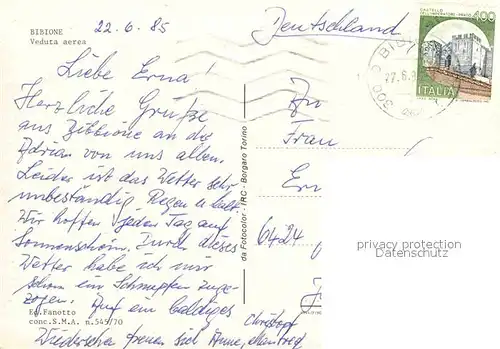 BIBIONE
Veduta aerea
22.6.85
Deutschland
CASTELLO DELL'IMPERATORE - PRATO
400
ITALIA
Liebe Erna!
Herzliche Grüße
aus Bibbione an der
Adria von uns allen.
Leider ist das Wetter sehr
unbeständig. Regen u. kalt.
Wir hoffen jeden Tag auf
Sonnenschein. Durch dieses
Wetter habe ich mir
schon ein Schnupfen zuge-
zogen. Auf ein baldiges
Wiedersehen freuen sich Anne, Manfred
Christoph
An
Frau
Ern
6424
privacy protection
da Fotocolor - IRC - Borgaro Torino
Ed. Fanotto
conc. S.M.A. n. 545/70